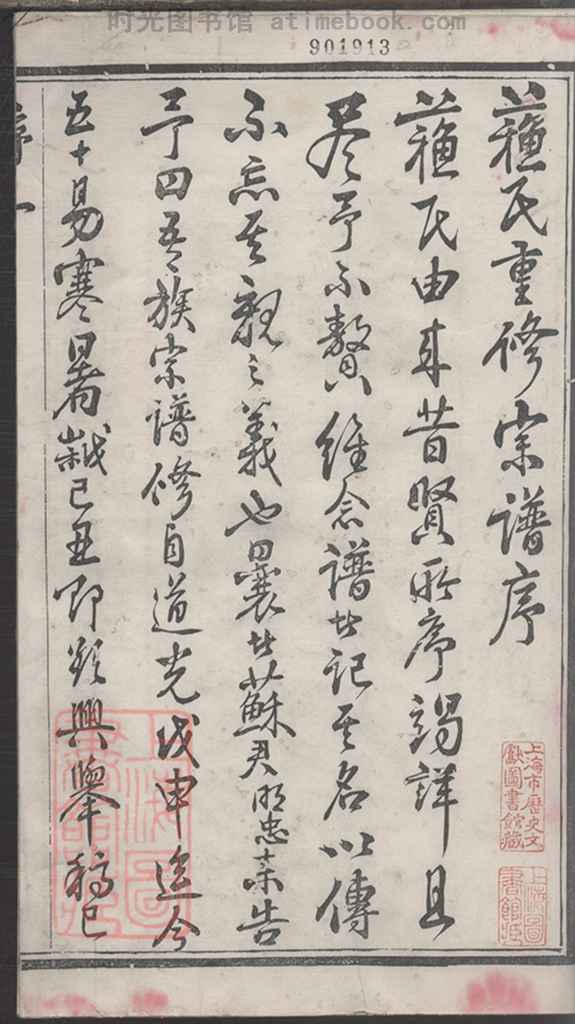 时光图书馆 atimebook.com
901913
蘓氏重修宗譜序
蘓氏由來昔賢所序謁詳且
尽予不贅但念譜者記其名以傳
不忘其親之義也曩者蘇君明忠來告
予曰吾族宗譜修自道光戊申迄今
五十易寒暑越己丑即欲興舉稿已
序 一
上海市歷史文
獻圖書館藏
上海圖
書館藏
上海圖
書館藏